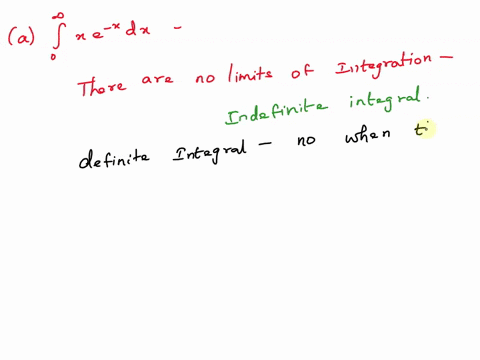 (a) ∫₀^∞ x e^{-x} dx –
There are no limits of Integration –
Indefinite integral.
definite Integral – no when ti